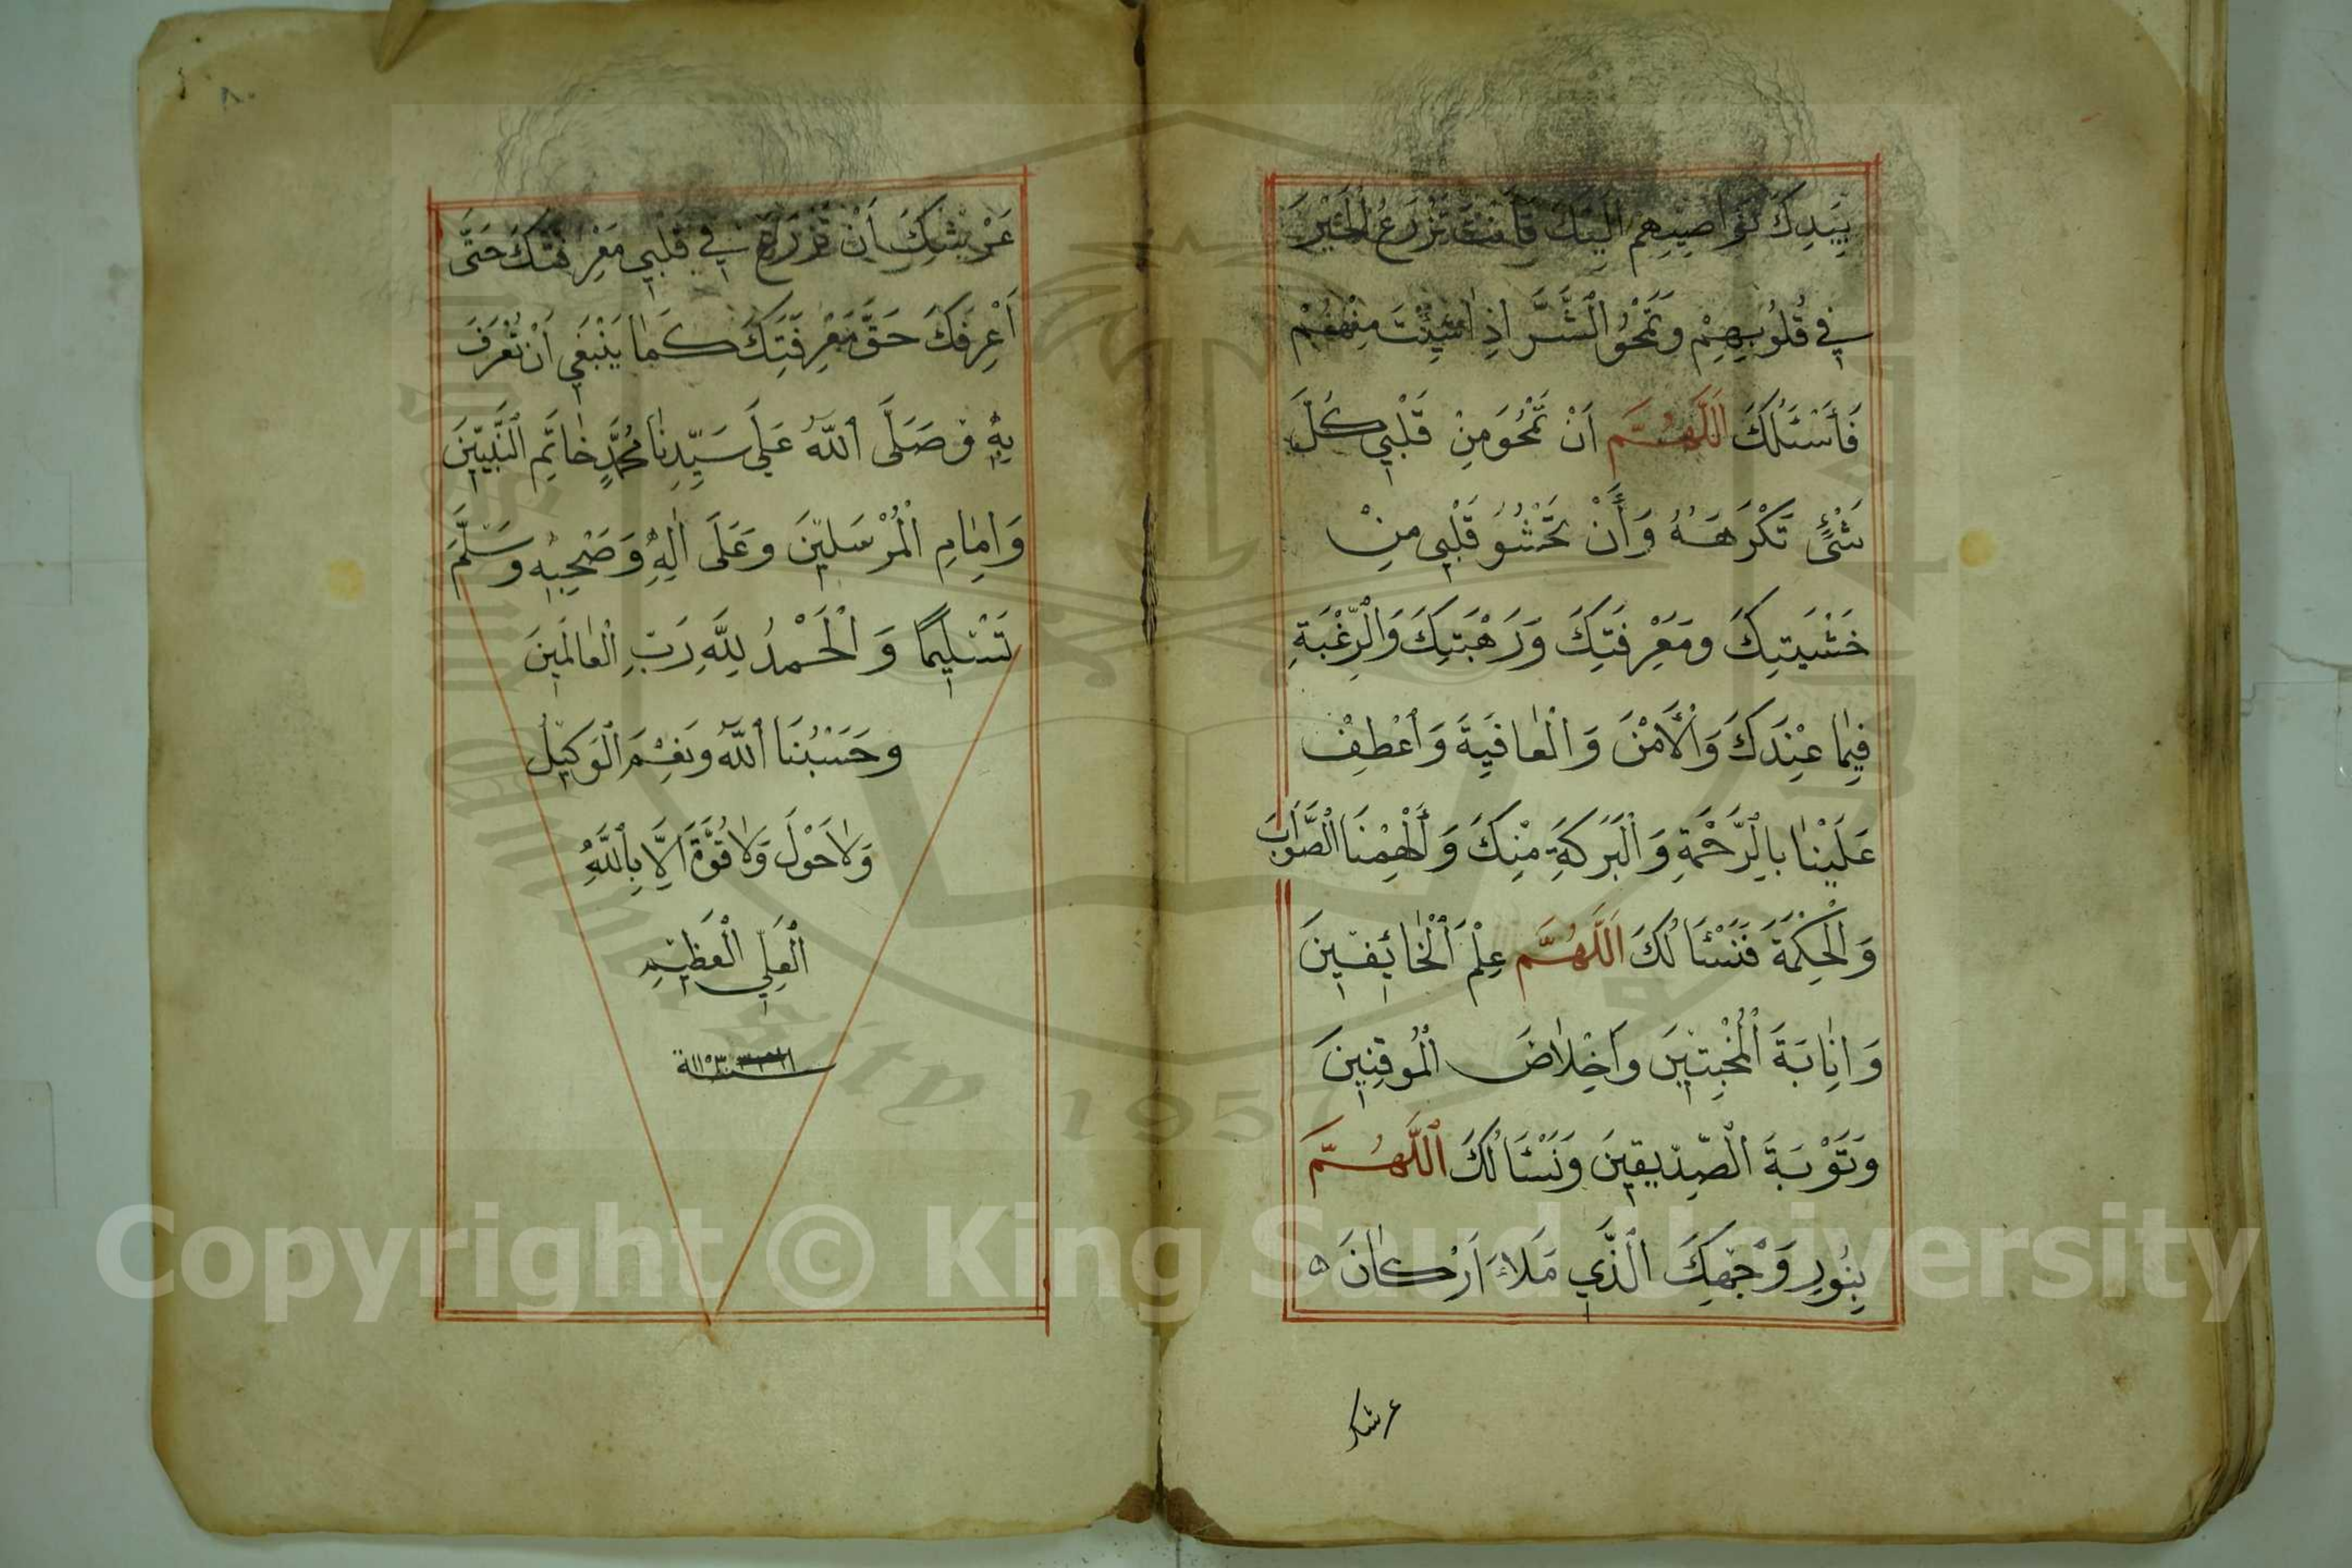 بِيَدِكَ نَوَاصِيهِمْ اِلَيْكَ فَاَنْتَ تَزْرَعُ الْخَيْرَ
فِي قُلُوبِهِمْ وَتَمْحُو الشَّرَّ اِذَا شِئْتَ مِنْهُمْ
فَأَسْئَلُكَ اَللّٰهُمَّ اَنْ تَمْحُوَ مِنْ قَلْبِي كُلَّ
شَيْئٍ تَكْرَهُهُ وَأَنْ تَحْشُوَ قَلْبِي مِنْ
خَشْيَتِكَ وَمَعْرِفَتِكَ وَرَهْبَتِكَ وَالرَّغْبَةِ
فِيمَا عِنْدَكَ وَالْأَمْنَ وَالْعَافِيَةَ وَاعْطِفْ
عَلَيْنَا بِالرَّحْمَةِ وَالْبَرَكَةِ مِنْكَ وَأَلْهِمْنَا الصَّوَابَ
وَالْحِكْمَةَ فَنَسْئَالُكَ اَللّٰهُمَّ عِلْمَ الْخَائِفِينَ
وَاِنَابَةَ الْمُخْبِتِينَ وَاِخْلَاصَ الْمُوقِنِينَ
وَتَوْبَةَ الصِّدِّيقِينَ وَنَسْئَالُكَ اللّٰهُمَّ
بِنُورِ وَجْهِكَ الَّذِي مَلَاءَ اَرْكَانَ
عرشك
٨٠
عَرْشِكَ اَنْ تَزْرَعَ فِي قَلْبِي مَعْرِفَتَكَ حَتَّى
اَعْرِفَكَ حَقَّ مَعْرِفَتِكَ كَمَا يَنْبَغِي اَنْ تُعْرَفَ
بِهِ وَصَلَّى اللّٰهُ عَلَى سَيِّدِنَا مُحَمَّدٍ خَاتَمِ النَّبِيِّينَ
وَاِمَامِ الْمُرْسَلِينَ وَعَلَى اٰلِهِ وَصَحْبِهِ وَسَلَّمَ
تَسْلِيمًا وَالْحَمْدُ لِلّٰهِ رَبِّ الْعَالَمِينَ
وَحَسْبُنَا اللّٰهُ وَنِعْمَ الْوَكِيلُ
وَلَا حَوْلَ وَلَا قُوَّةَ اِلَّا بِاللّٰهِ
الْعَلِيِّ الْعَظِيمِ
Copyright © King Saud University
1957